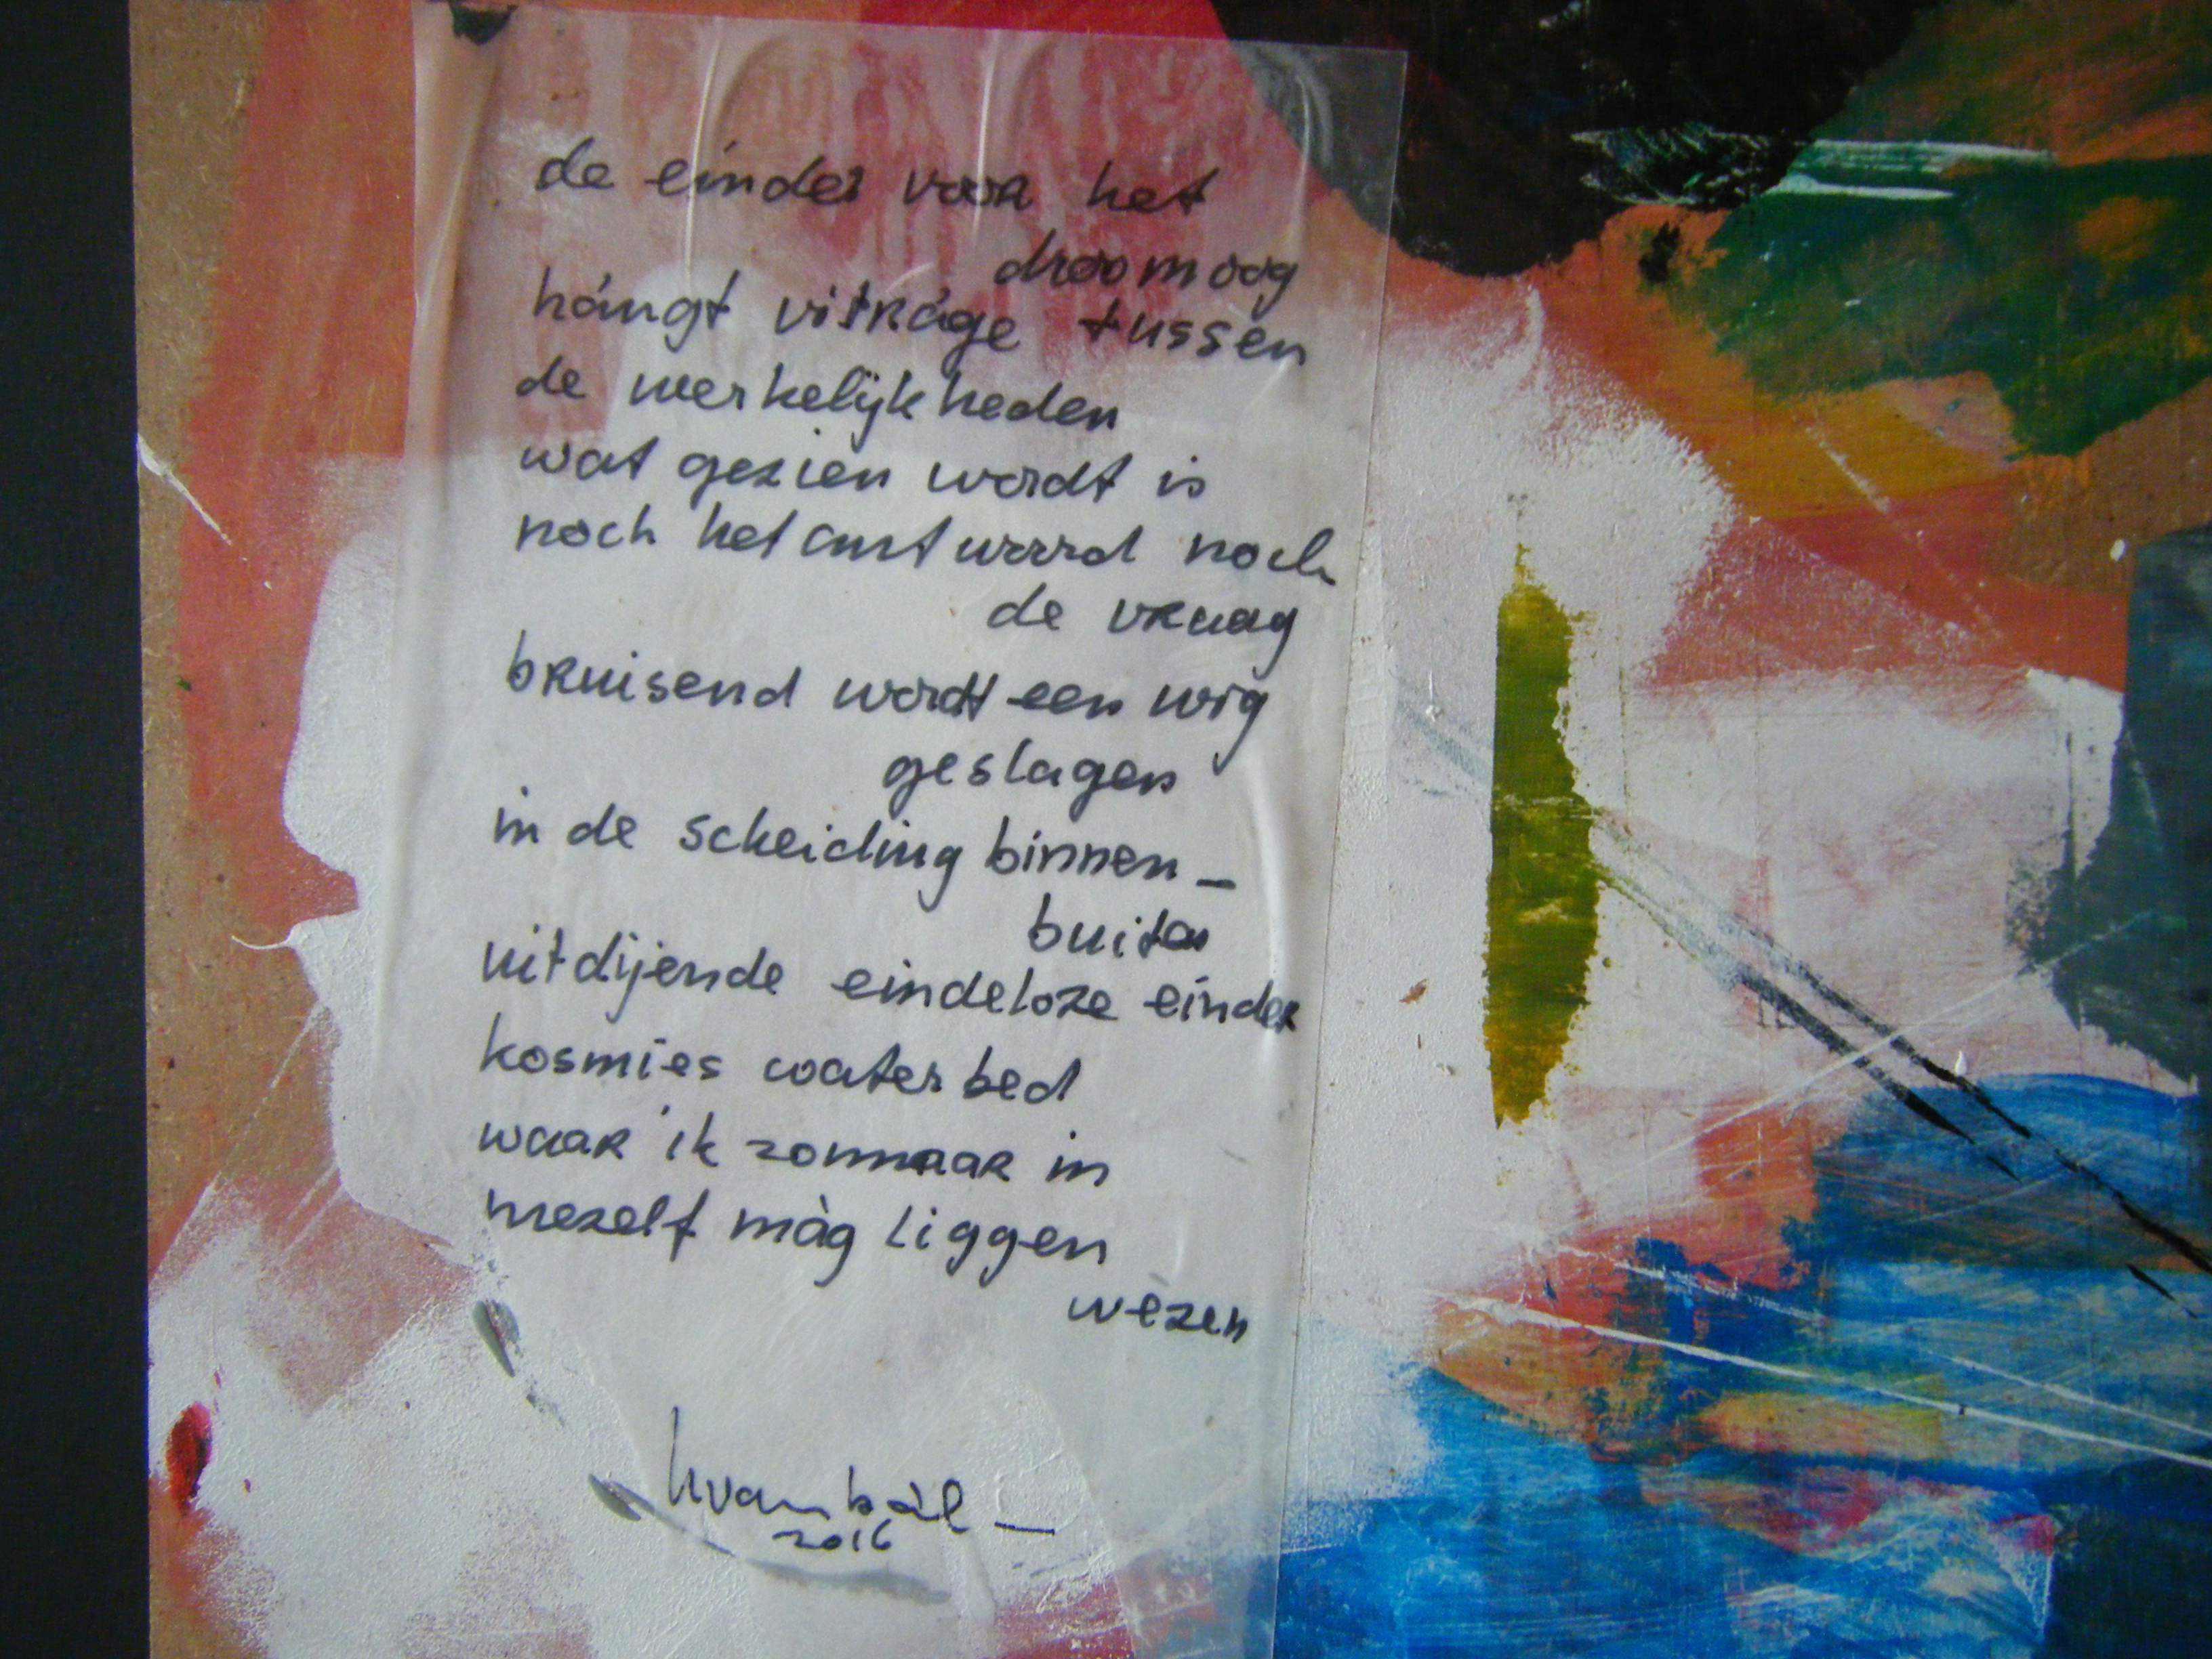 de einder voor het
droomoog
hángt vitráge tussen
de werkelijkheden
wat gezien wordt is
noch het antwoord noch
de vraag
bruisend wordt een wig
geslagen
in de scheiding binnen-
buiten
uitdijende eindeloze einder
kosmies waterbed
waar ik zonnaar in
mezelf màg liggen
wezen
hvanbail -
2016